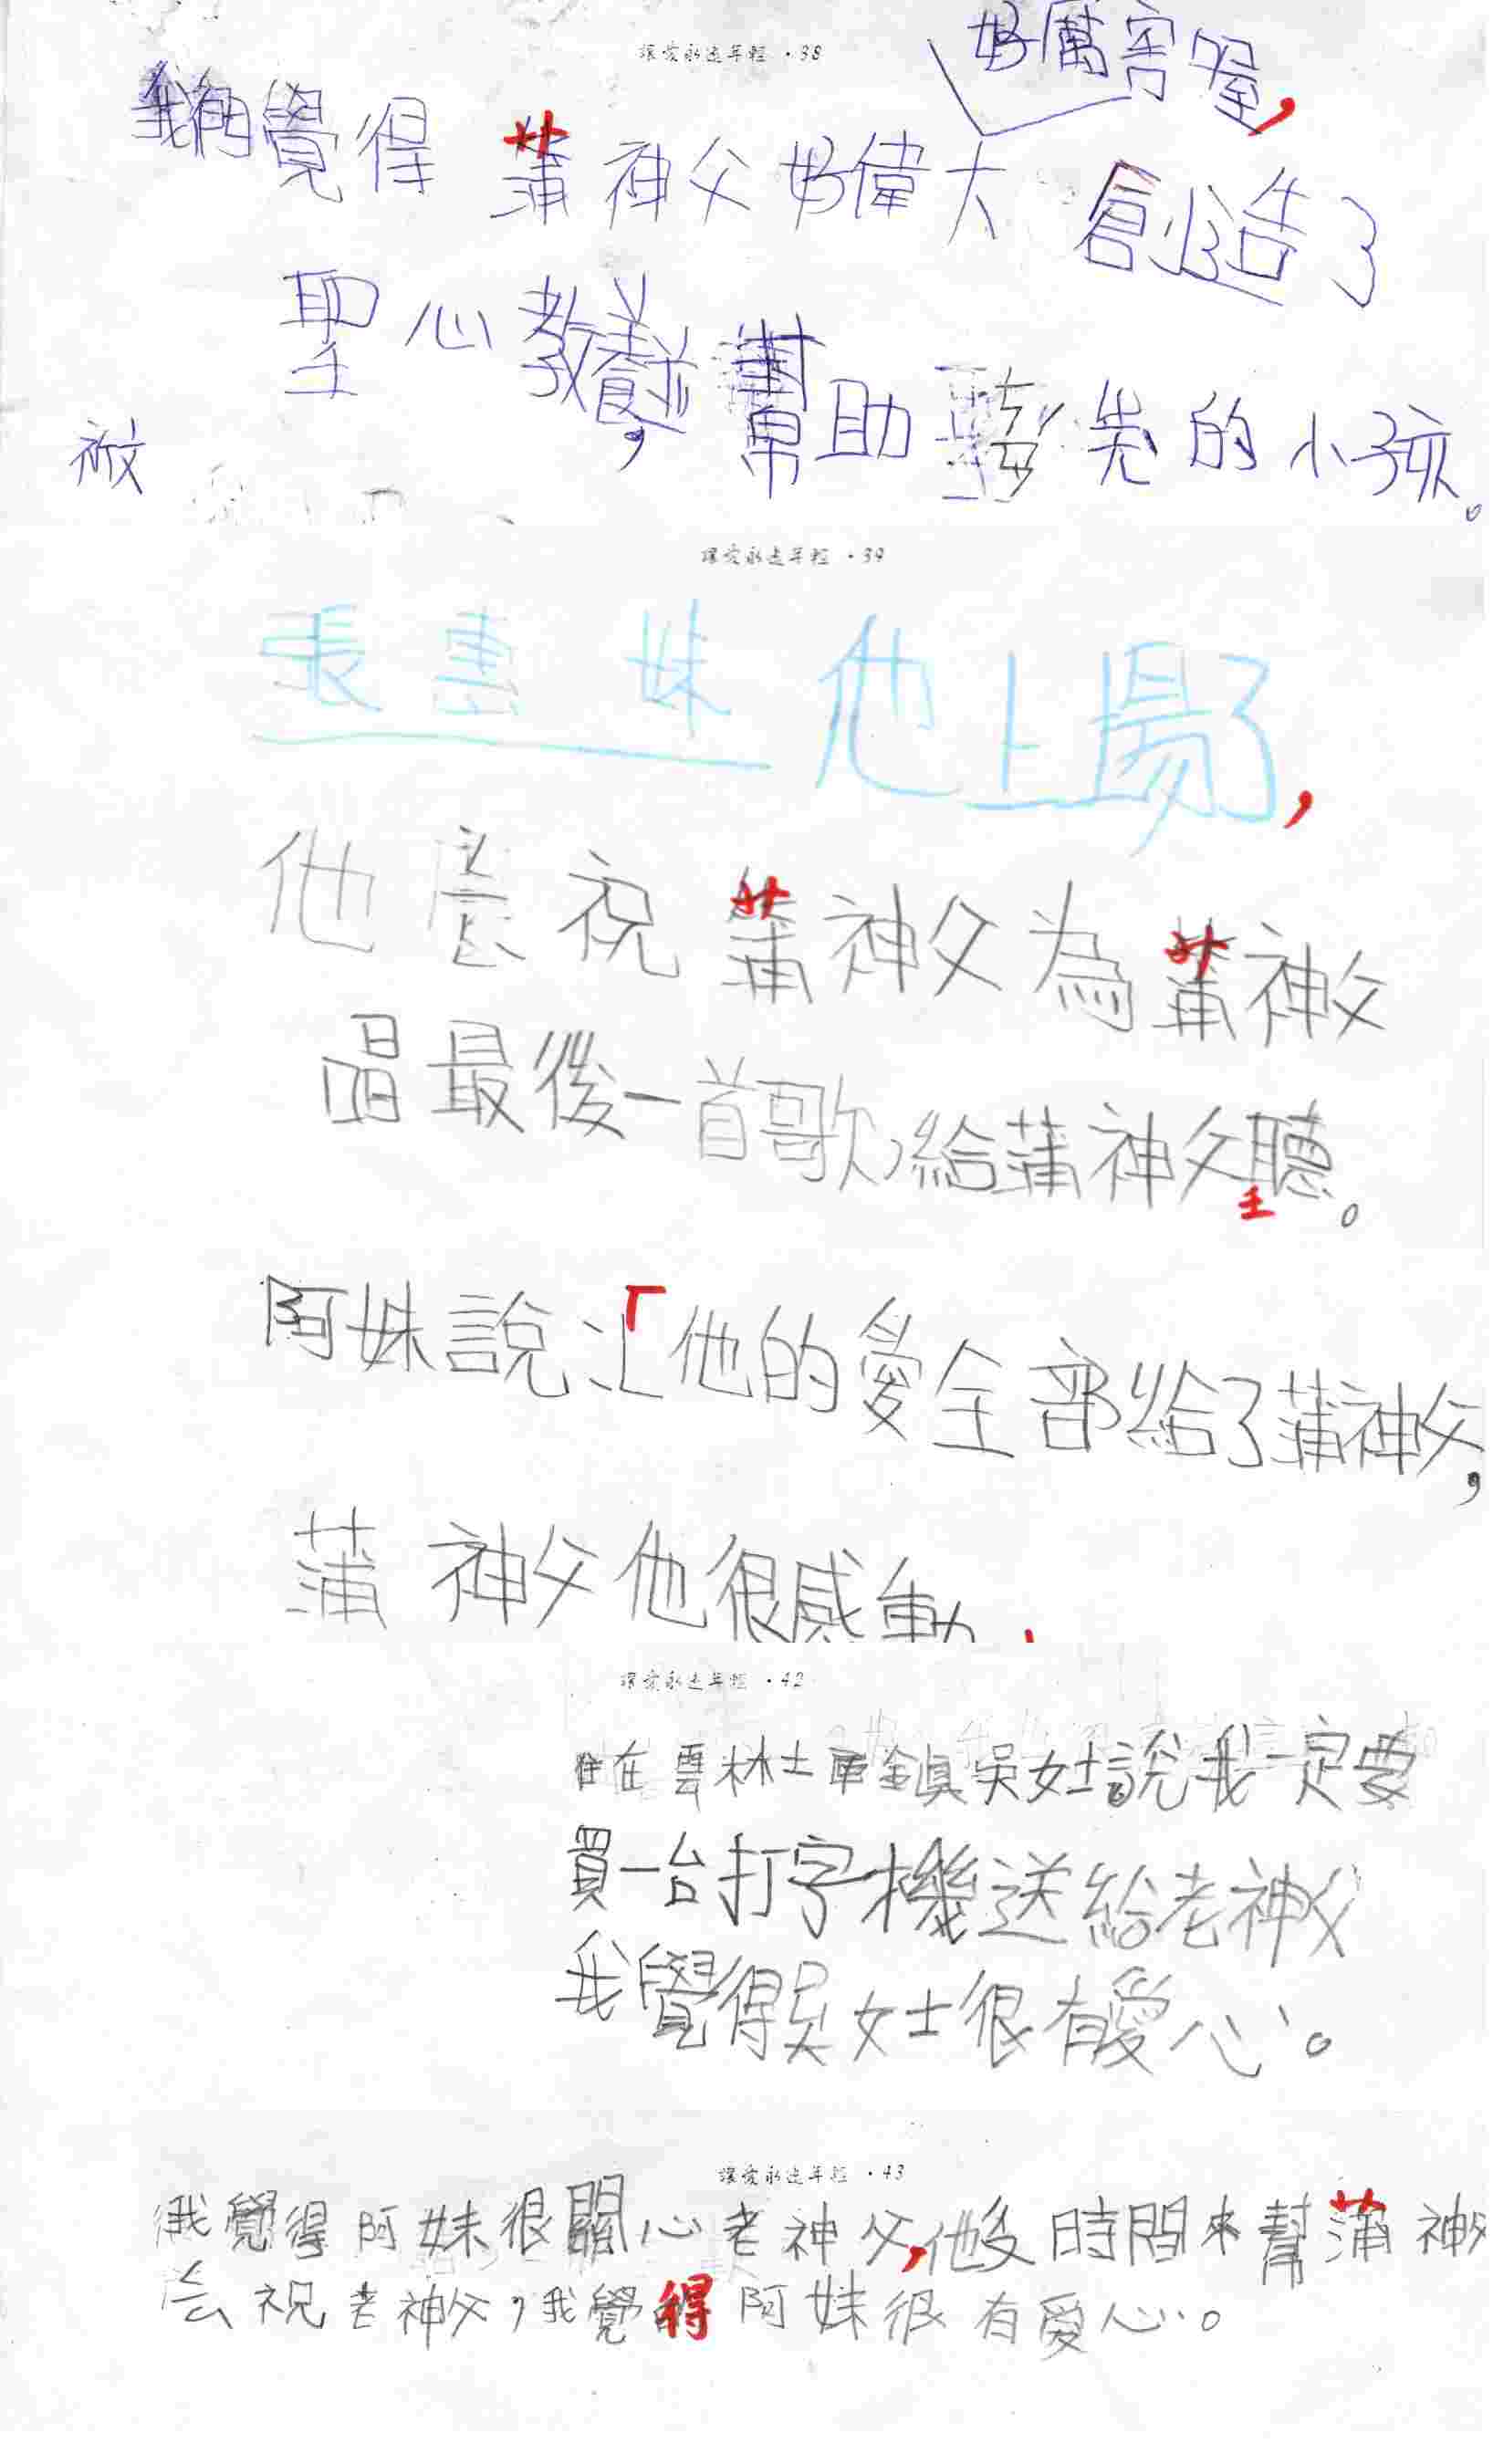 讓愛永遠年輕 ·38
好厲害喔，
我們覺得 蒲神父好偉大 創造了
聖心教養 幫助 的小孩。
讓愛永遠年輕 ·39
張惠妹他上場了，
他 祝蒲神父為蒲神父
唱最後一首歌，給蒲神父聽。
阿妹說：「他的愛全部給了蒲神父，
蒲神父他很感動
讓愛永遠年輕 ·42
住在雲林土庫鎮吳女士說我一定要
買一台打字機送給老神父
我覺得吳女士很有愛心。
讓愛永遠年輕 ·43
我覺得阿妹很關心老神父，他 時間來幫蒲神父
去祝老神父，我覺得阿妹很有愛心。